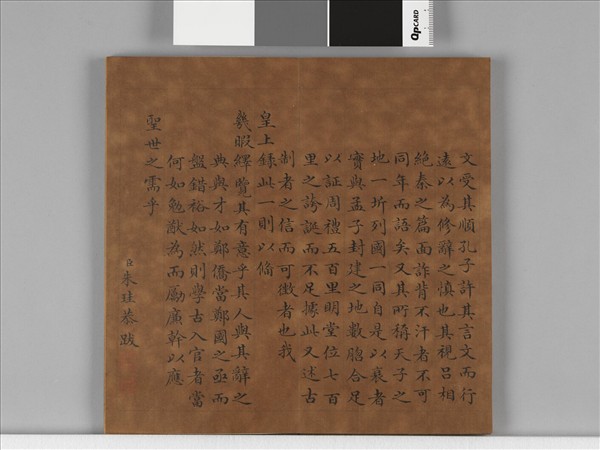 QPCARD
文受其順孔子許其言文而行
遠以為修辭之慎也其視呂相
絕秦之篇面詐背不汗者不可
同年而語矣又其所稱天子之
地一圻列國一同自是以衰者
實與孟子封建之地數脗合足
以証周禮五百里明堂位七百
里之誇誕而不足據此又述古
制者之信而可徵者也我
皇上錄此一則以備
羲暇繹覽其有意乎其人與其辭之
典與才如鄭僑當鄭國之亟而
盤錯裕如然則學古入官者當
何如勉猷為而勵廉幹以應
聖世之需乎
臣朱珪恭跋